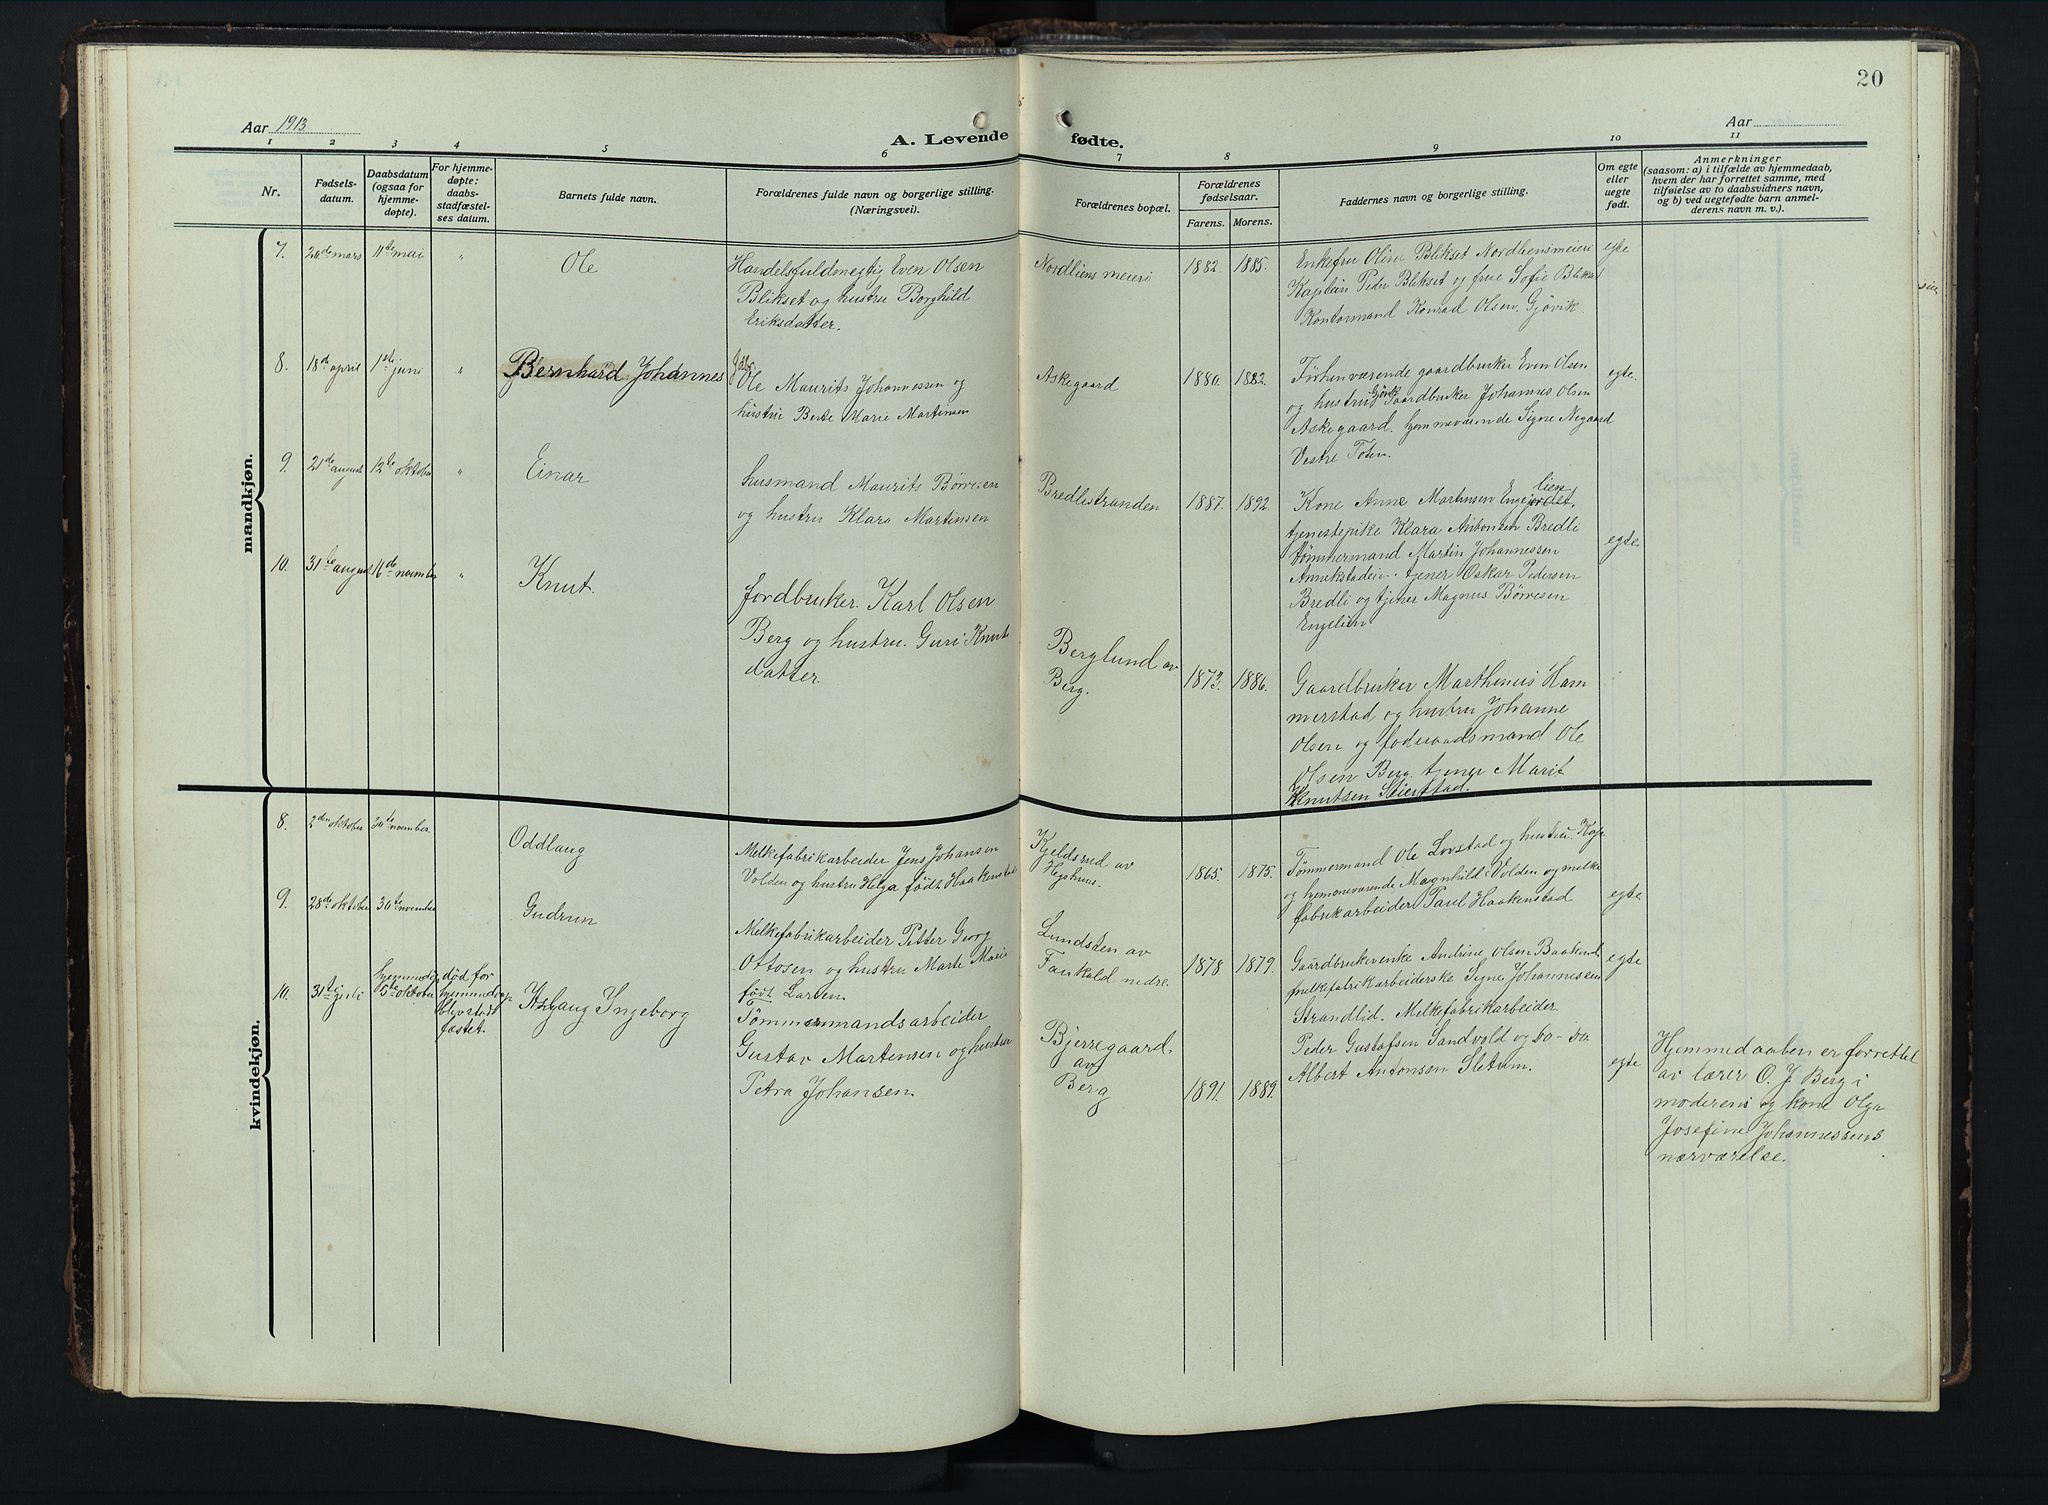 20
Aar 1913
A. Levende fødte.
Aar
1 2 3 4 5 6 7 8 9 10 11
Nr.
Fødsels-
datum.
Daabsdatum
(ogsaa for
hjemme-
døpte).
For hjemme-
døpte:
daabs-
stadfæstel-
ses datum.
Barnets fulde navn.
Forældrenes fulde navn og borgerlige stilling.
(Næringsvei).
Forældrenes bopæl.
Forældrenes
fødselsaar.
Farens. Morens.
Faddernes navn og borgerlige stilling.
Om egte
eller
uegte
født.
Anmerkninger
(saasom: a) i tilfælde av hjemmedaab,
hvem der har forrettet samme, med
tilføielse av to daabsvidners navn,
og b) ved uegtefødte barn anmel-
derens navn m. v.).
mandkjøn.
7. 20de mars 11te mai " Ole
Handelsfuldmegtig Even Olsen
Blikset og hustru Borghild
Eriksdatter.
Nordliens meieri 1882. 1885.
Enkefru Oline Blikset Nordliensmeieri
Kaptein Peder Blikset og frue Sofie Blikset
Kontormand Konrad Olsen. Gjøvik.
egte
8. 18de april 1ste juni " Bernhard Johannes
Ole Maurits Johannessen og
hustru Berte Marie Martinsen
Askegaard 1880. 1882.
Forhenværende gaardbruker Even Olsen
og hustru Gaardbruker Johannes Olsen
Askegaard. hjemmeværende Signe Negaard
Vestre Toten.
egte.
9. 21de august 12te oktober " Einar
husmand Maurits Børresen
og hustru Klara Martinsen
Bredlistranden 1887. 1892.
Kone Anne Martinsen Engejordet, lien
tjenestepike Klara Antonsen Bredli
Tømmermand Martin Johannessen
Annekstadeie. tjener Oskar Pedersen
Bredli og tjener Magnus Børresen
Engelien
egte.
10. 31te august 16de november " Knut.
Jordbruker. Karl Olsen
Berg og hustru. Guri Knuts
datter.
Berglund av
Berg. 1873. 1886.
Gaardbruker Marthinus Ham
merstad og hustru Johanne
Olsen og føderaadsmand Ole
Olsen Berg. tjener Marit
Knutsen Seierstad.
kvindekjøn.
8. 2den oktober 30te november. Oddlaug
Melkefabrikarbeider Jens Johansen
Volden og hustru Helga født Haakenstad
Kjeldsrud av
Hegshuus. 1865. 1875.
Tømmermand Ole Lovstad og hustru.
og hjemmeværende Magnhild Volden og melke
fabrikarbeider Paul Haakenstad
egte
9. 28de oktober 30te november Gudrun
Melkefabrikarbeider Petter Georg
Ottosen og hustru Marte Marie
født Larsen.
Lundsten av
Faukald nedre. 1878. 1879.
Gaardbrukerenke Andrine Olsen Baakend
melkefabrikarbeiderske Signe Johannessen
Strandlid. Melkefabrikarbeider
Peder Gustafsen Sandvold og do-do
Albert Antonsen Sletum.
egte
10. 31te juli hjemmedøp
5te oktober
død før
hjemmedaap
blev stad
fæstet.
Aslaug Ingeborg
Tømmermandsarbeider
Gustav Martensen og hustru
Petra Johansen.
Bjerregaard.
av
Berg 1891. 1889.
egte
Hjemmedaaben er forrettet
av lærer O. J Berg i
moderens og kone Olga
Josefine Johannessens
nærværelse.